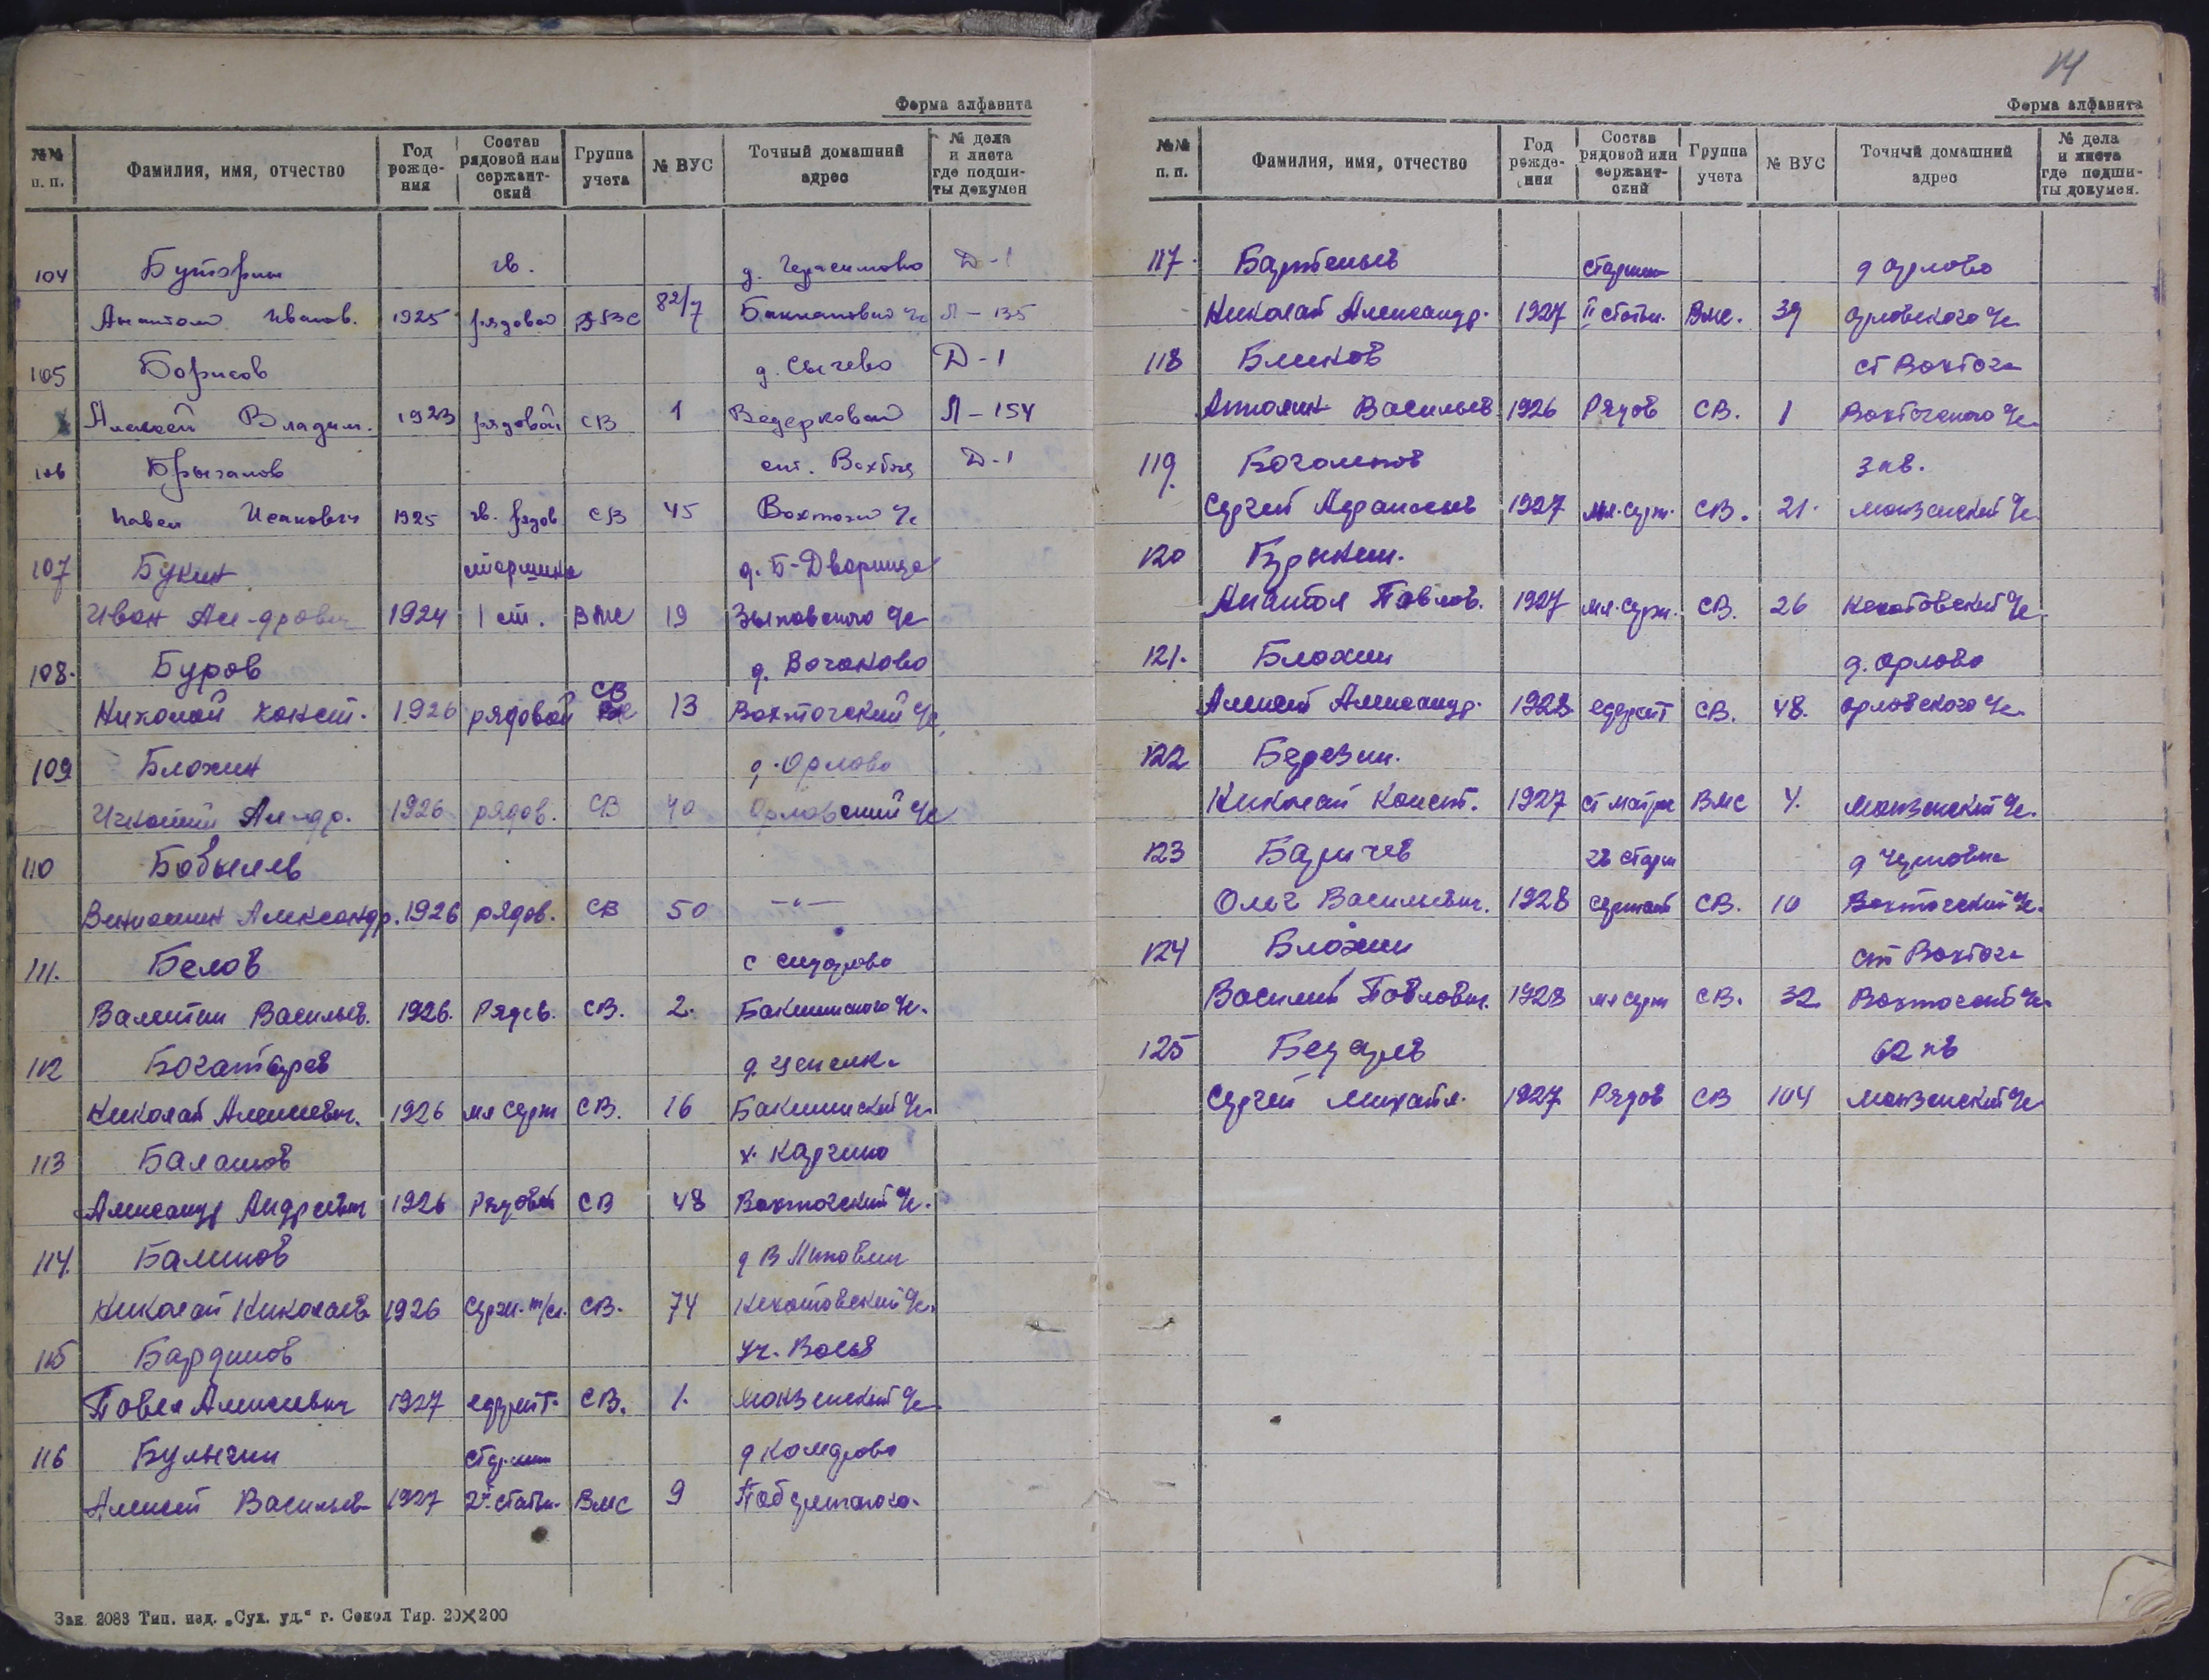 Форма алфавита
№№ п. п. Фамилия, имя, отчество Год рожде-ния Состав рядовой или сержант-ский Группа учета № ВУС Точный домашний адрес № дела и листа где подши-ты докумен
104 Буторин гв. д. Герасимово Д-1
Анатолий Иванов. 1925 рядовой ВВС 82/7 Л-135
105 Борисов д. Сычево Д-1
Алексей Владим. 1923 рядовой СВ 1 Ведерковский Л-154
106 ст. Вохтога Д-1
Павел Исакович 1925 гв. рядов СВ 45 Вохтожс
107 Букин старшина д. Б-Дворища
Иван Ал-дрович 1924 1 ст. ВМС 19 Зыковского с/с
108. Буров д. Вочаково
Николай Конст. 1926 рядовой СВ 13 Вохтогский с/с
109 Блохин д. Орлово
Ал-др. 1926 рядов. СВ 40 Орловский с/с
110 Бобылев
Вениамин Александр. 1926 рядов. СВ 50 -"-
111. Белов с Сидорово
Валентин Васильев. 1926. Рядов. СВ. 2.
112 Богатырев
Николай Алексеевич. 1926 мл серж СВ. 16
113 Балашов х. Каргино
Александр Андреевич 1926 Рядовой СВ 48 Вохтогский с/с.
114. Балинов
Николай Николаев 1926 Серж. т/сл. СВ. 74
115 Бардинов уч. Восья
Павел Алексеевич 1927 ефрейт. СВ. 1. Монзенский с/с
116 Булыгин старшин
Алексей Васильев 1927 2й статьи. ВМС 9
Зак. 2083 Тип. изд. „Сух. уд.“ г. Сокол Тир. 20×200
14
Форма алфавита
№№ п. п. Фамилия, имя, отчество Год рожде-ния Состав рядовой или сержант-ский Группа учета № ВУС Точный домашний адрес № дела и листа где подши-ты докумен.
117. Бартеньев старшин д Орлово
Николай Александр. 1927 II статьи. ВМС. 39 Орловского с/с
118 Блинов ст Вохтога
Васильев 1926 Рядов СВ. 1 Вохтогского с/с
119. Богомолов 3 кв.
Сергей 1927 мл. серж. СВ. 21. Монзенский с/с
120
Анатол Павлов. 1927 мл. серж. СВ. 26
121. Блохин д. Орлово
Алексей Александр. 1928 ефрейт СВ. 48. Орловского с/с
122 Березин.
Николай Конст. 1927 ст матрос ВМС 4. Монзенский с/с.
123 Баричев гв старш
Олег Васильевич. 1928 сержант СВ. 10 Вохтогский с/с.
124 Блохин ст Вохтога
Василий Павлович. 1928 мл серж СВ. 32
125 62 кв
Сергей Михайл. 1927 Рядов СВ 104 Монзенский с/с